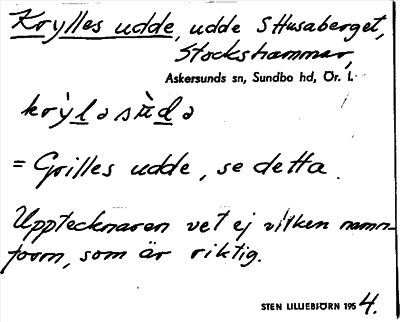 Krylles udde, udde S Husaberget,
Stockshammar,
Askersunds sn, Sundbo hd, Ör. l.
krỳlə sùdə
= Grilles udde, se detta.
Upptecknaren vet ej vilken namn-
form, som är riktig.
STEN LILLIEBJÖRN 1954.